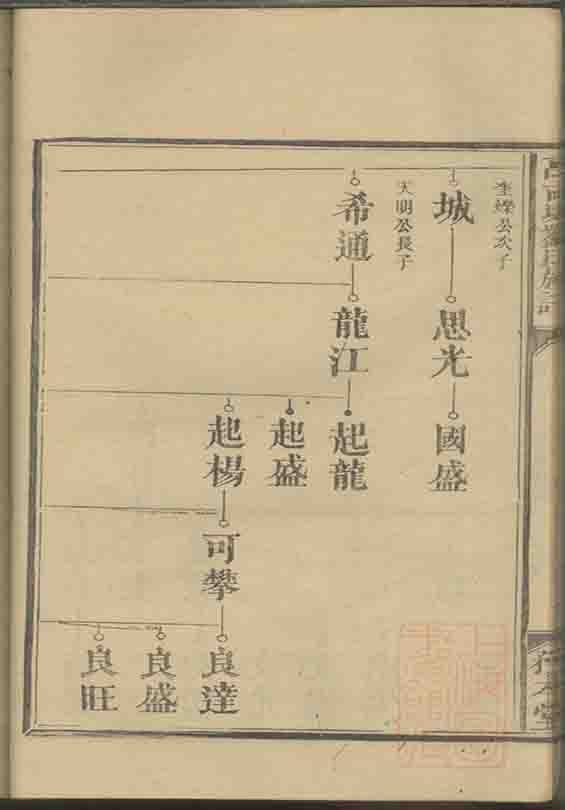 公次子
城
思光
國盛
天明公長子
希通
龍江
起龍
起盛
起楊
可攀
良達
良盛
良旺